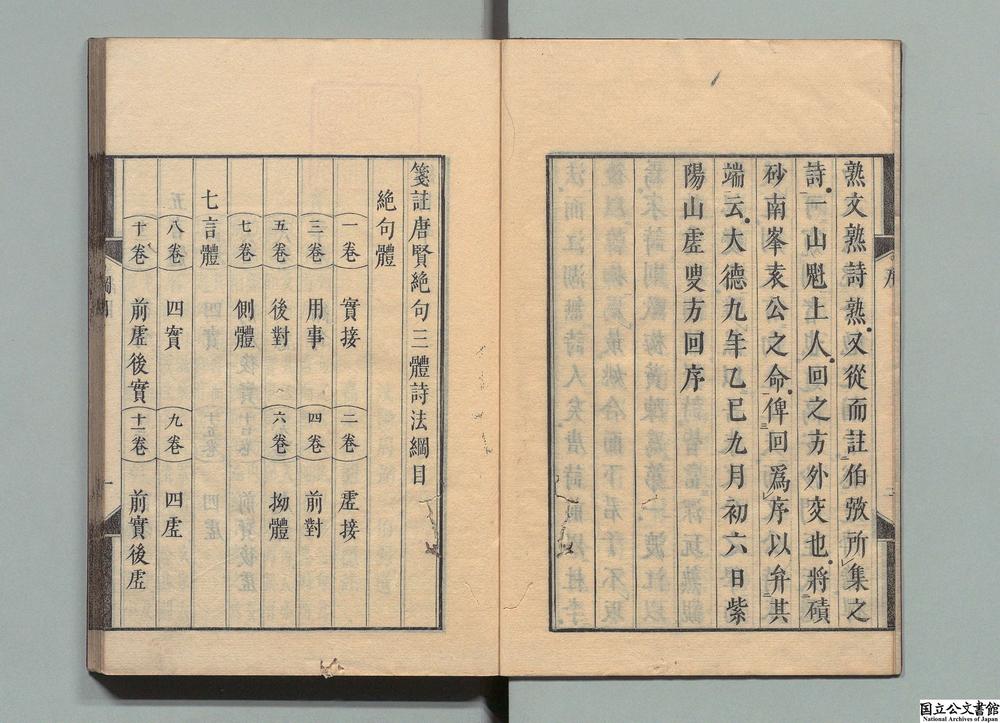 熟文熟詩熟又從而註伯弜所集之
詩一山魁上人回之方外交也將磧
砂南峯袁公之命俾回爲序以弁其
端云大德九年乙巳九月初六日紫
陽山虛叟方回序
箋註唐賢絶句三體詩法綱目
絶句體
一卷 實接 二卷 虛接
三卷 用事 四卷 前對
五卷 後對 六卷 拗體
七卷 側體
七言體
八卷 四實 九卷 四虛
十卷 前虛後實 十一卷 前實後虛
国立公文書館
National Archives of Japan